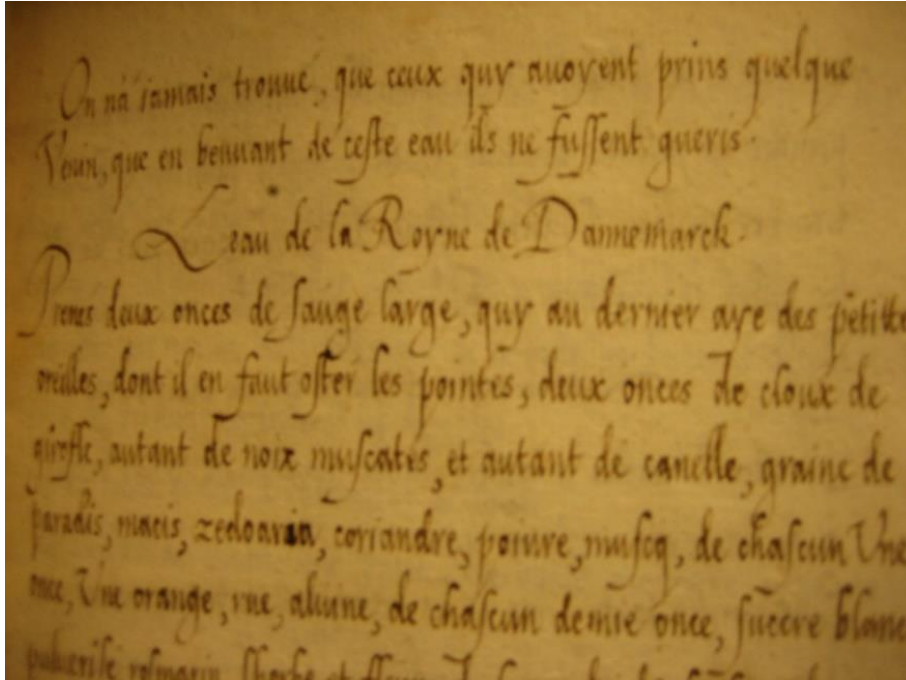 On na iamais trouué, que ceux quy auoyent prins quelque
Venin, que en beuuant de ceste eau ils ne fussent gueris.
Leau de la Royne de Dannemarck.
Prenes deux onces de sauge large, quy au dernier aye des petittes
oreilles, dont il en faut oster les pointes, deux onces de cloux de
girofle, autant de noix muscates, et autant de canelle, graine de
paradis, macis, zedoaria, coriandre, poiure, muscq, de chascun Vne
once, Vne orange, rue, aluine, de chascun demie once, succre blanc
puluerisé rosmarin, et